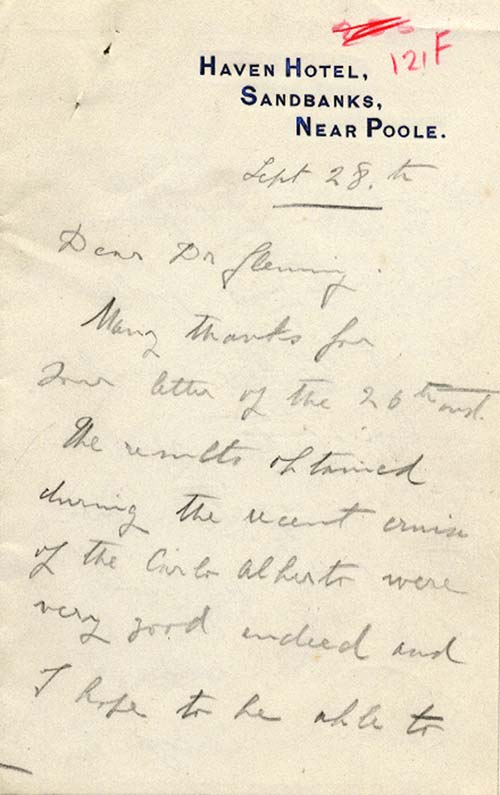 121F
HAVEN HOTEL,
SANDBANKS,
NEAR POOLE.
Sept 28.th
Dear Dr Fleming.
Many thanks for
your letter of the 26th inst.
The results obtained
during the recent cruise
of the Carlo Alberto were
very good indeed and
I hope to be able to